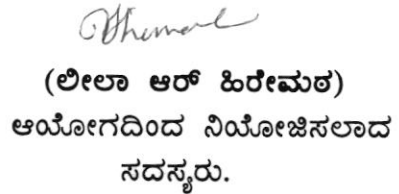 (ಲೀಲಾ ಆರ್ ಹಿರೇಮಠ)
ಆಯೋಗದಿಂದ ನಿಯೋಜಿಸಲಾದ
ಸದಸ್ಯರು.